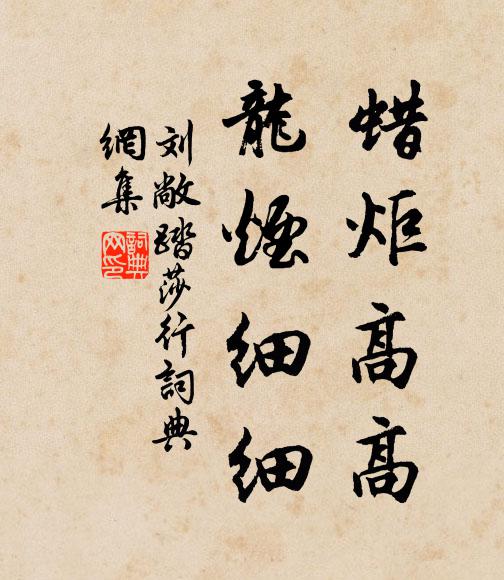 蜡炬高高
龍煙細細
刘敞踏莎行詞典
網集
詞典网印